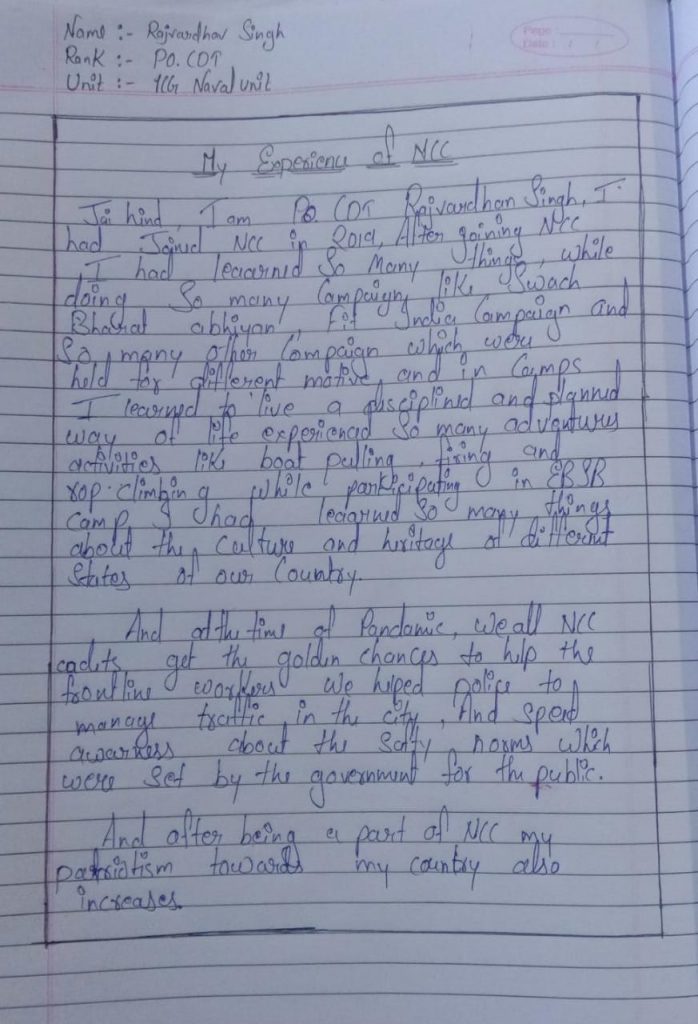 Page :
Date : / /
Name :- Rajvardhan Singh
Rank :- PO. CDT
Unit :- 1CG Naval unit
My Experience of NCC
Jai hind, I am Po. CDT Rajvardhan Singh, I
had Joined NCC in 2019, After joining NCC
, I had learned So Many things, while
doing So many Campaign, like Swach
Bharat abhiyan, Fit India Campaign and
So many other Campaign which were
held for different motive, and in Camps
I learned to live a disciplined and planned
way of life experienced So many adventures
activities like boat pulling, firing and
rop climbing while participating in EBSB
Camp I had learned So many things
about the culture and heritage of different
States of our Country.
And at the time of Pandamic, We all NCC
cadets get the golden chances to help the
frontline workers We helped police to
manage traffic in the city, And Spend
awarness about the Safty norms which
were Set by the government for the public.
And after being a part of NCC my
patriotism towards my country also
increases.